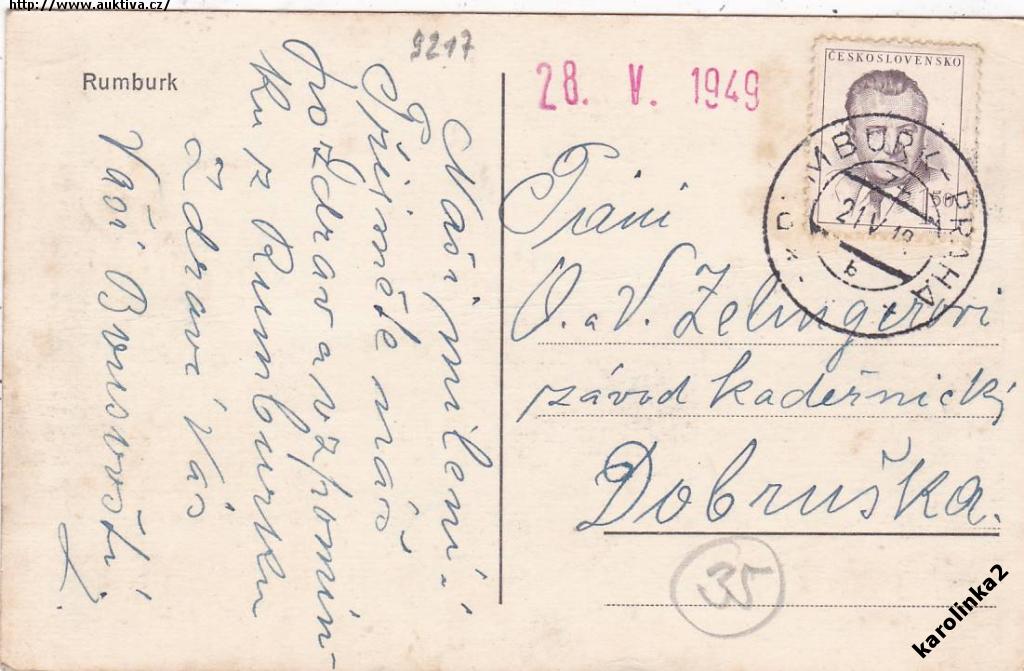 http://www.auktiva.cz/
Rumburk
9217
Naši milení!
Přijměte náš
pozdrav a vzpomín-
ku z Rumburku
Zdraví Vás
Vaši
28. V. 1949
ČESKOSLOVENSKO
RUMBURK - PRAHA
21 V
b
Paní
O. a V. Zelingerovi
závod kadeřnický
Dobruška.
35
karolinka2